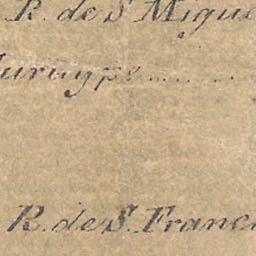 R. de S. Migue
uruype
R. de S. Franc